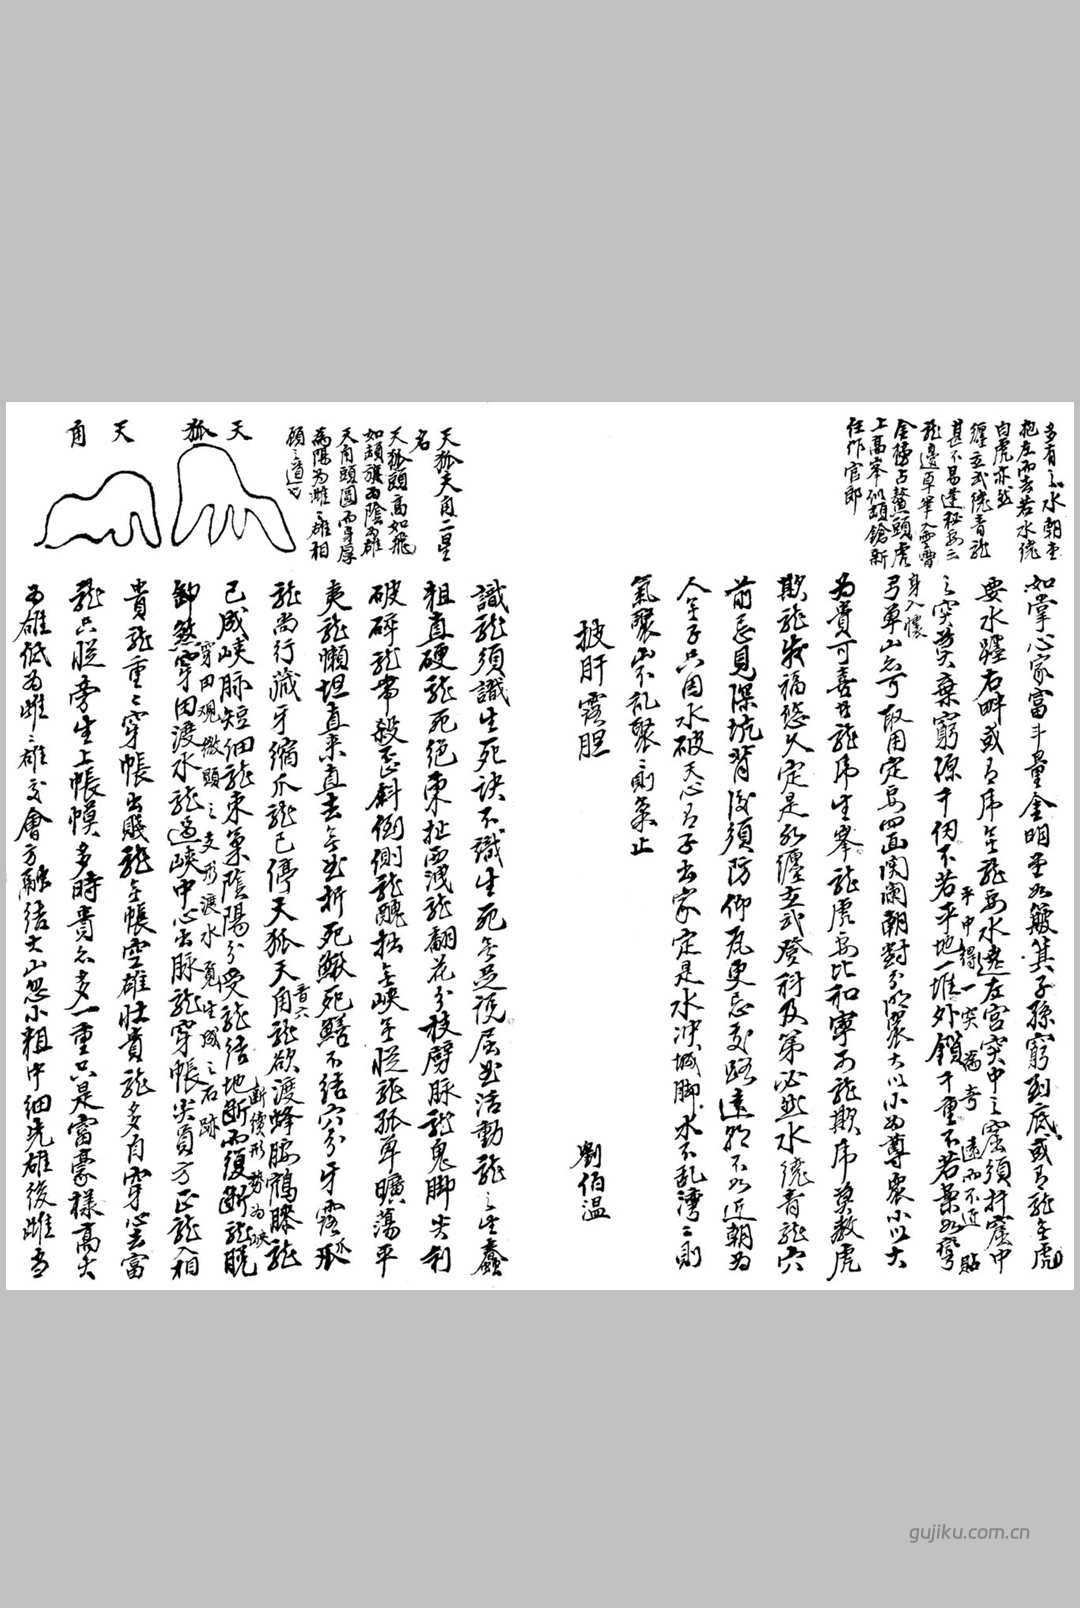 多有之水朝堂
抱左而去若水繞
白虎亦然
纏玄武繞青龍
甚不易達秘
龍邊卓筆入雲霄
金榜占鰲頭虎
上高峯似頓鎗新
任作官郎
如掌心家富斗量金明堂如簸箕子孫窮到底或有龍無虎
要水纏右畔或有虎無龍要水遶左宮突中之窟須扦窟中
之突莫棄窮源千仞不若平地一堆外鎖千重不若案如彎
平中得一突為奇 遠而不近貼
身入懷
弓單山亦可取用定局四面関闌朝對分明衆大以小為尊衆小以大
為貴可喜者龍虎生峯龍虎要比和寧可龍欺虎莫教虎
欺龍發福悠久定是水纏玄武登科及第必然水繞青龍穴
前忌見深坑背後須防仰瓦更忌交路遠朝不如近朝為
人無子只因水破天心有子去家定是水冲城脚水不乱灣灣則
氣聚山不乱聚聚則氣止
披肝露胆
劉伯温
天狐天角二星
名
天狐頭高如飛
如頓旗為陰為雄
天角頭圓而身厚
為陽為雌雌雄相
顧之道也
天狐
天角
識龍須識生死訣不識生死無足說屈曲活動龍之生蠢
粗直硬龍死絕東扯西洩龍翻花分枝劈脉龍鬼脚尖利
破碎龍帶殺歪斜倒側龍醜拙無峽無從龍孤單曠蕩平
夷龍懶坦直來直去無曲折死鰍死鱔不結穴分牙露爪
龍尚行藏牙縮爪龍已停天狐天角龍欲渡蜂腰鶴膝龍
已成峽脉短細龍束氣陰陽分受龍結地斷而復斷龍脫
斷續形勢為峽
卸煞穿田渡水龍過峽中心出脉龍穿帳尖員方正龍入相
穿田观撒頭之支形渡水覓生成之石跡
貴龍重重穿帳出賤龍無帳空雄壯貴龍多自穿心去富
龍只從旁生上帳幙多時貴亦多一重只是富豪樣高大
為雄低為雌雌雄交會方融結大山忽小粗中細先雄後雌昔